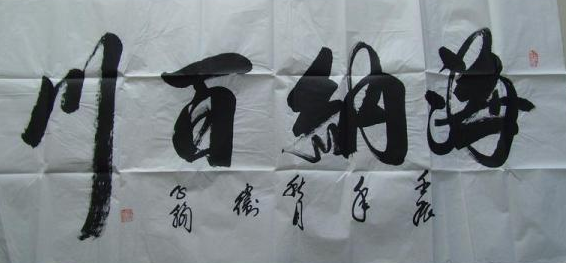 海納百川
壬辰年秋月